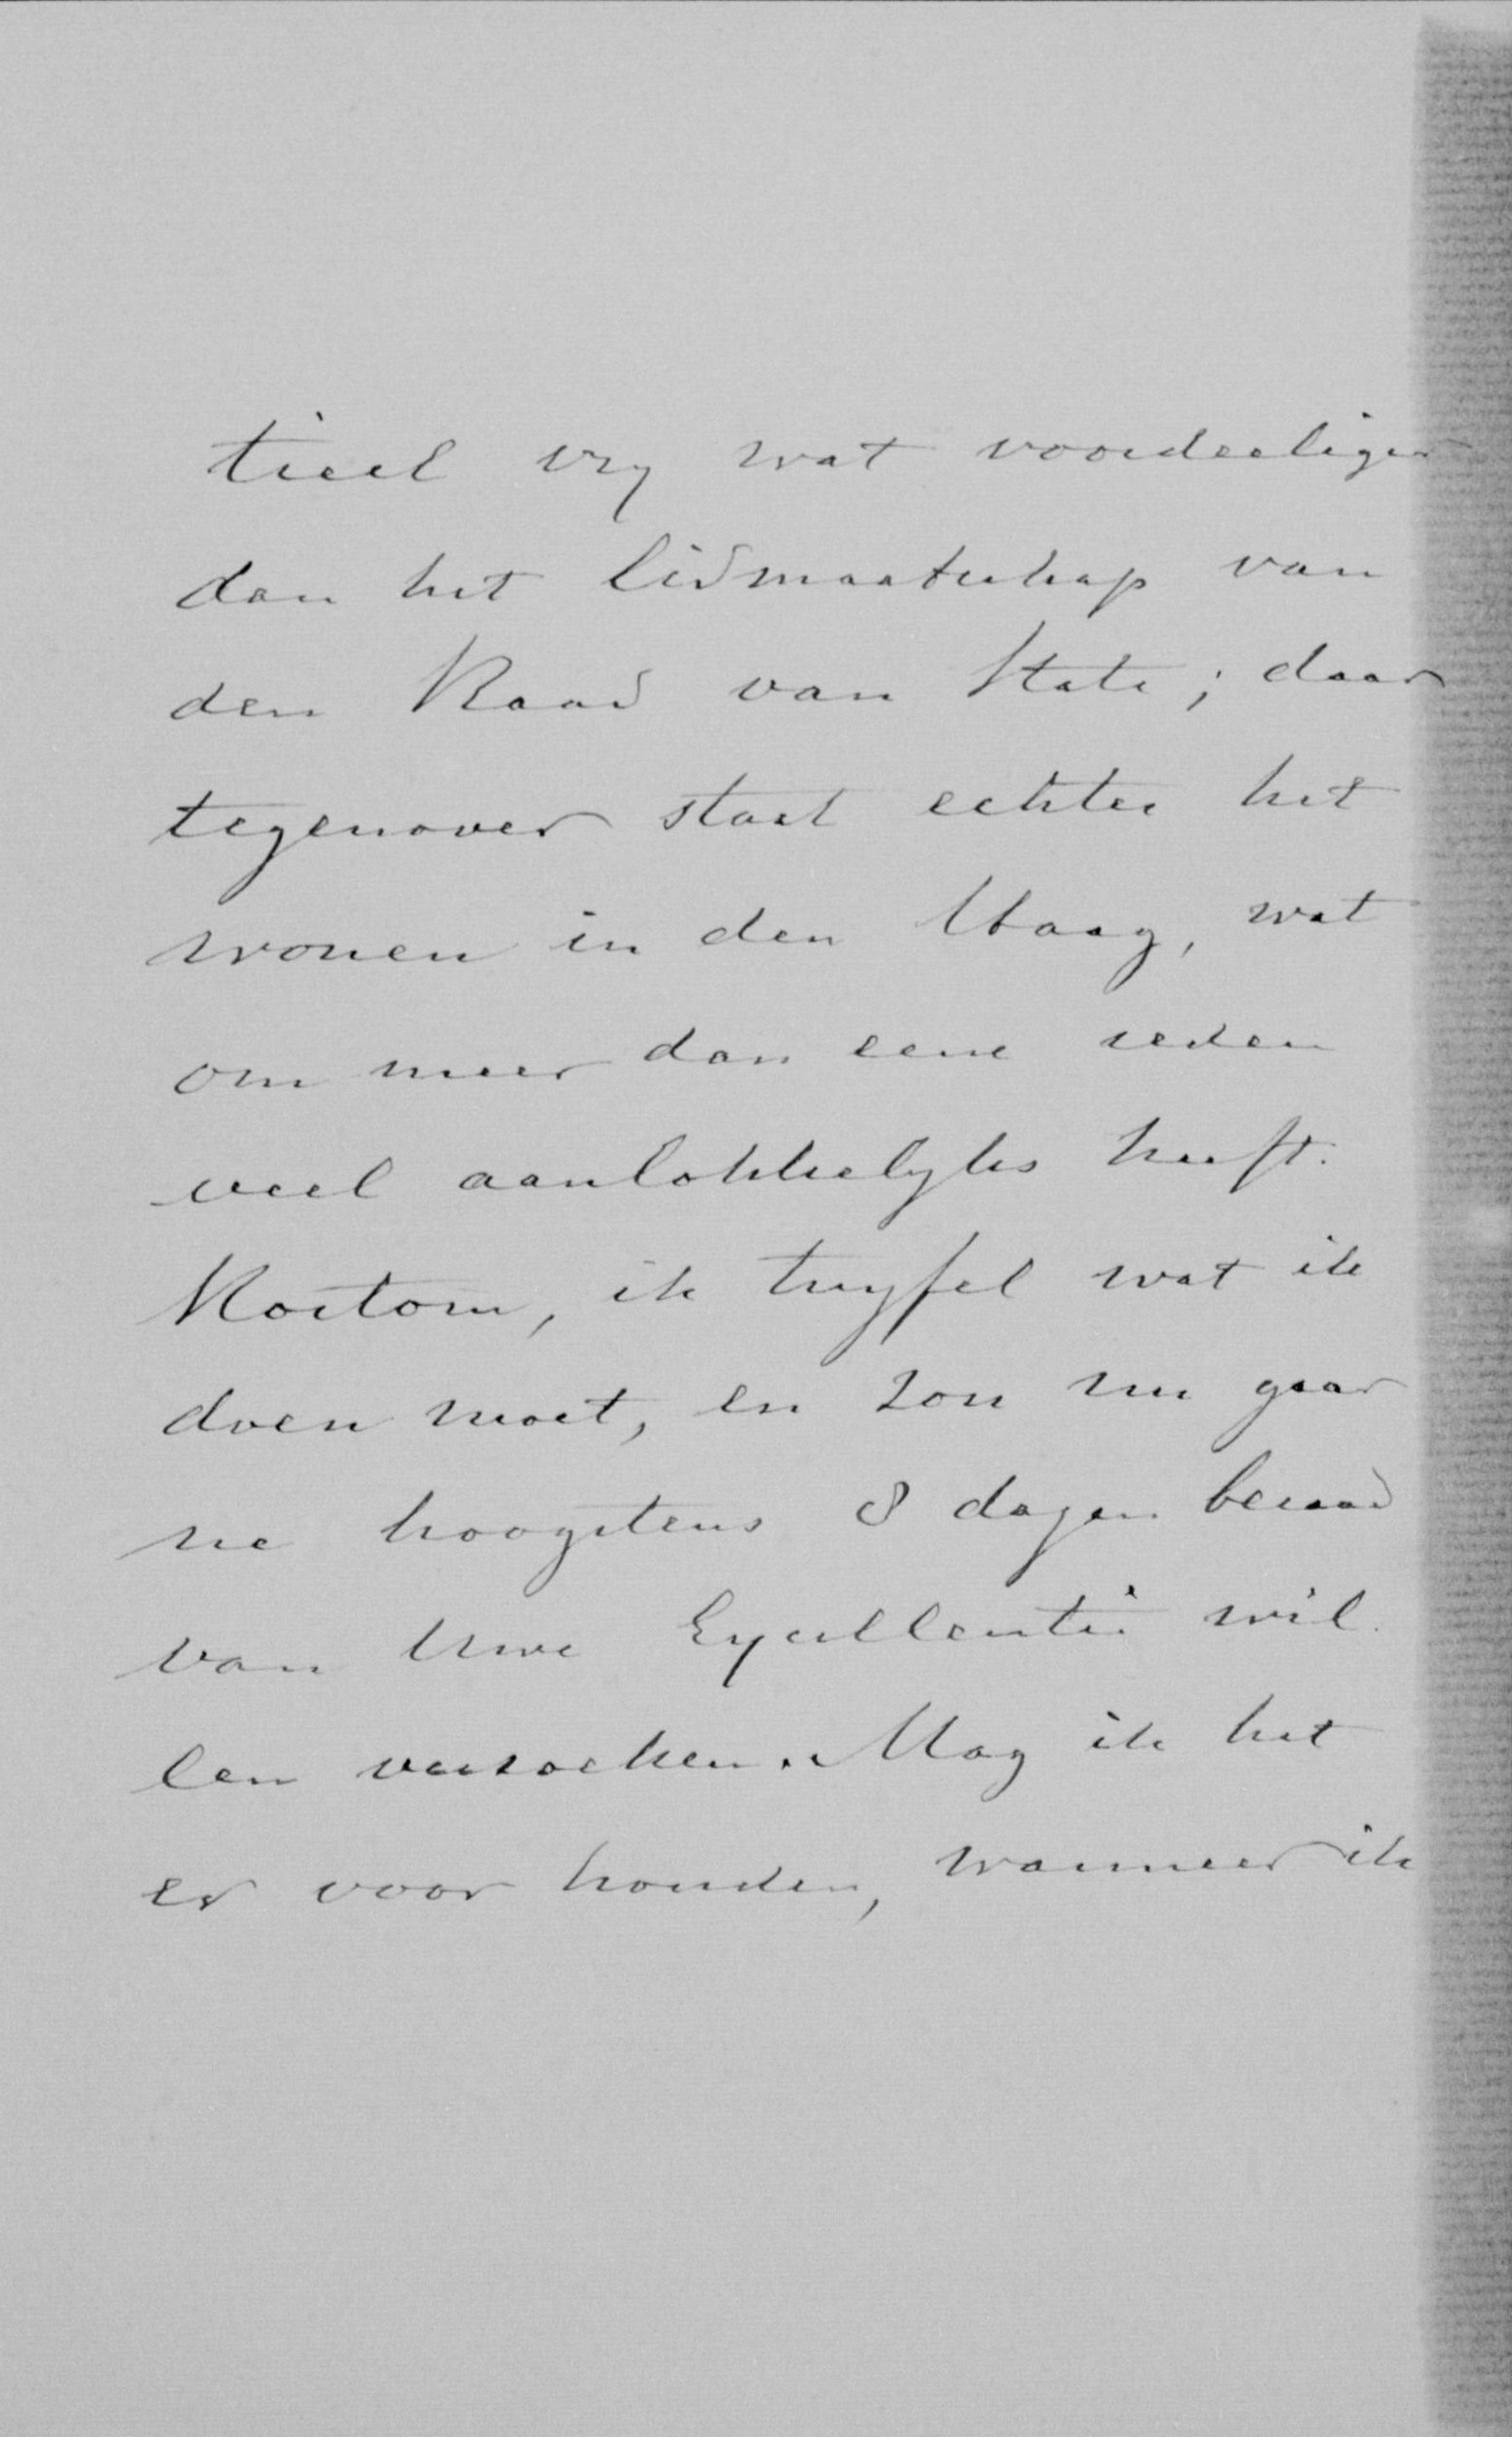 tieel vrij wat voordeeliger
dan het lidmaatschap van
den Raad van State; daar
tegenover staat echter het
wonen in den Haag, wat
om meer dan eene reden
veel aanlokkelijks heeft.
Kortom, ik twijfel wat ik
doen moet, en zou nu gaar
ne hoogstens 8 dagen beraad
van Uwe Excellentie wil
len verzoeken. Mag ik het
er voor houden, wanneer ik